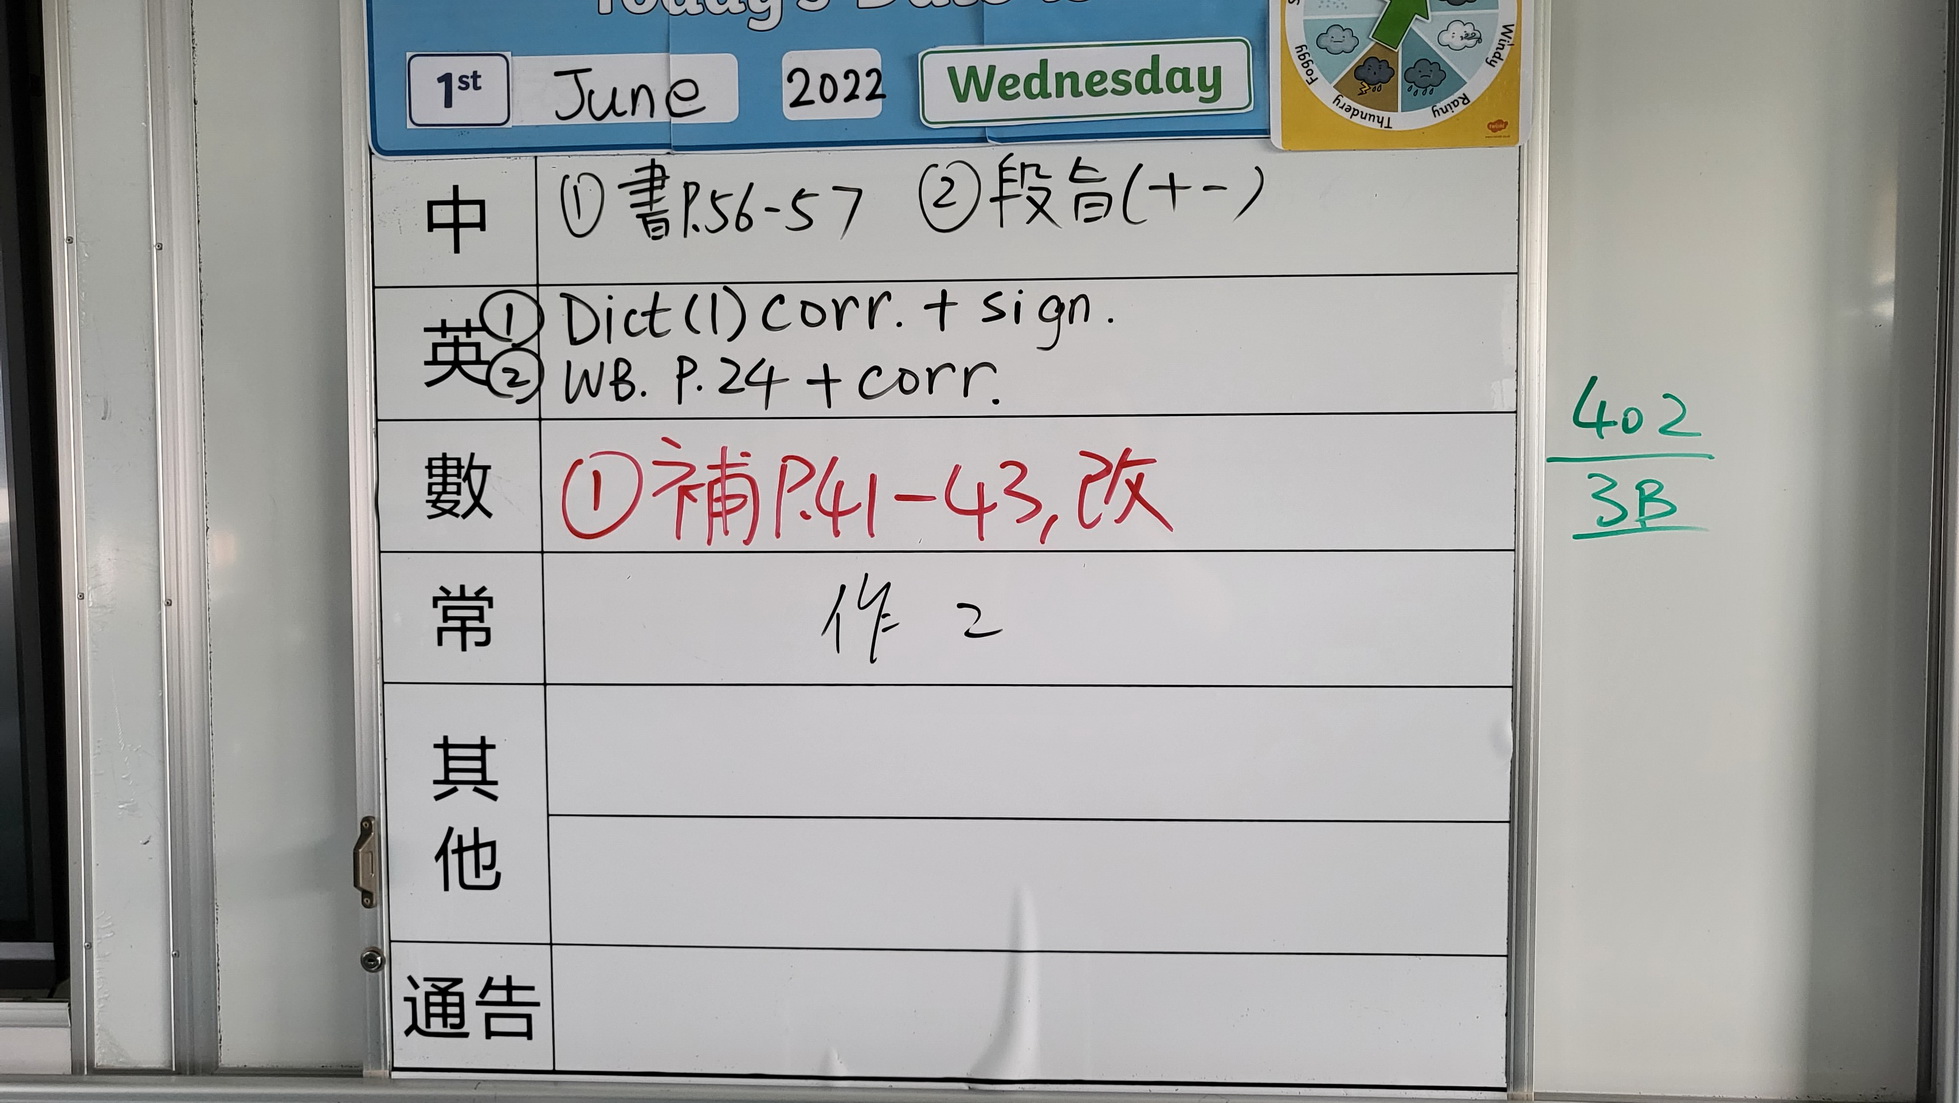 Today's Date is
1st June 2022 Wednesday
Foggy
Thundery
Rainy
Windy
中 ①書P.56-57 ②段旨(十一)
英 ① Dict(1) corr. + sign.
② WB. P.24 + corr.
數 ①補P.41-43,改
常 作 2
其他
通告
402
3B